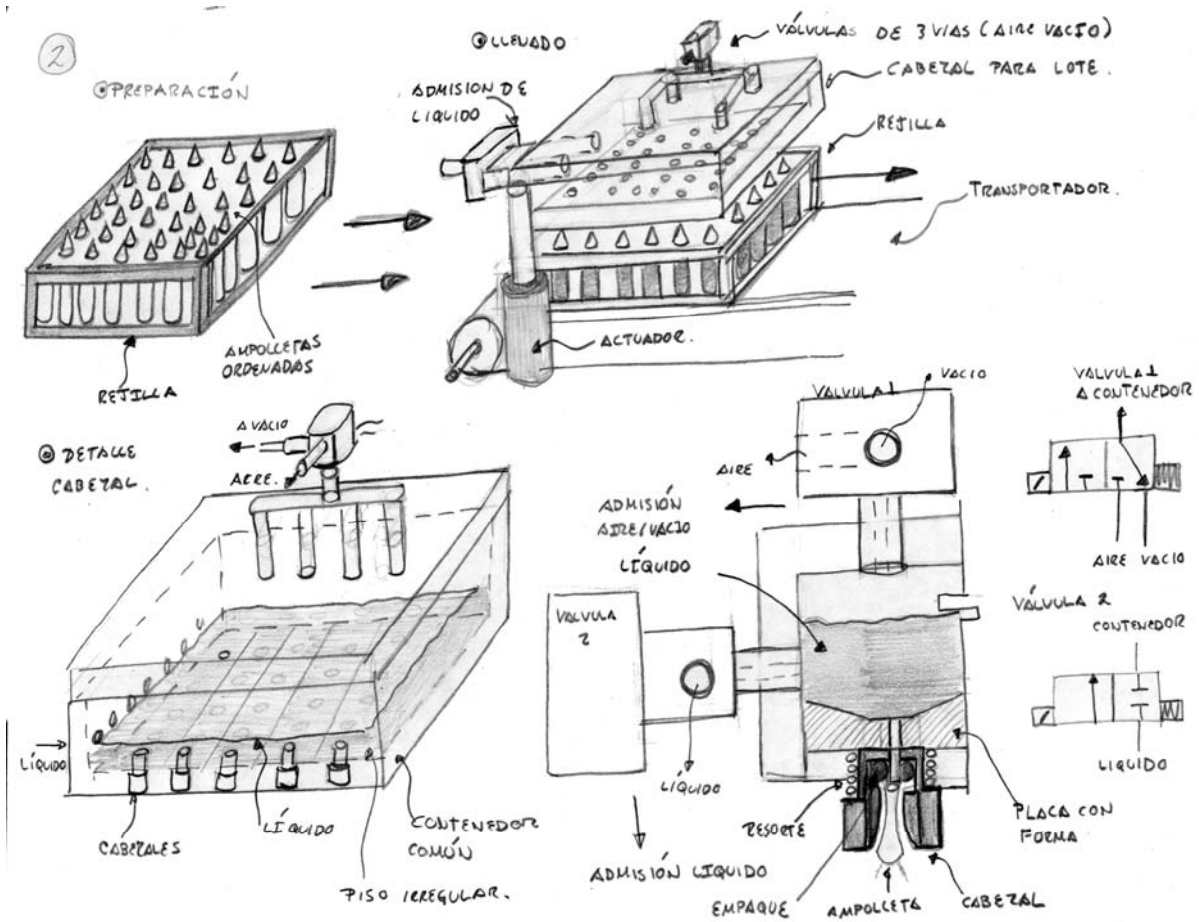 2
PREPARACIÓN
AMPOLLETAS
ORDENADAS
REJILLA
LLENADO
VÁLVULAS DE 3 VIAS (AIRE VACIO)
CABEZAL PARA LOTE.
ADMISION DE
LIQUIDO
REJILLA
TRANSPORTADOR.
ACTUADOR.
DETALLE
CABEZAL.
A VACIO
AIRE.
LÍQUIDO
CABEZALES
LÍQUIDO
CONTENEDOR
COMÚN
PISO IRREGULAR.
VALVULA 1
VACIO
AIRE
ADMISIÓN
AIRE/VACIO
LÍQUIDO
VALVULA
2
LÍQUIDO
ADMISIÓN LIQUIDO
RESORTE
EMPAQUE
AMPOLLETA
CABEZAL
PLACA CON
FORMA
VALVULA 1
A CONTENEDOR
AIRE VACIO
VÁLVULA 2
CONTENEDOR
LIQUIDO